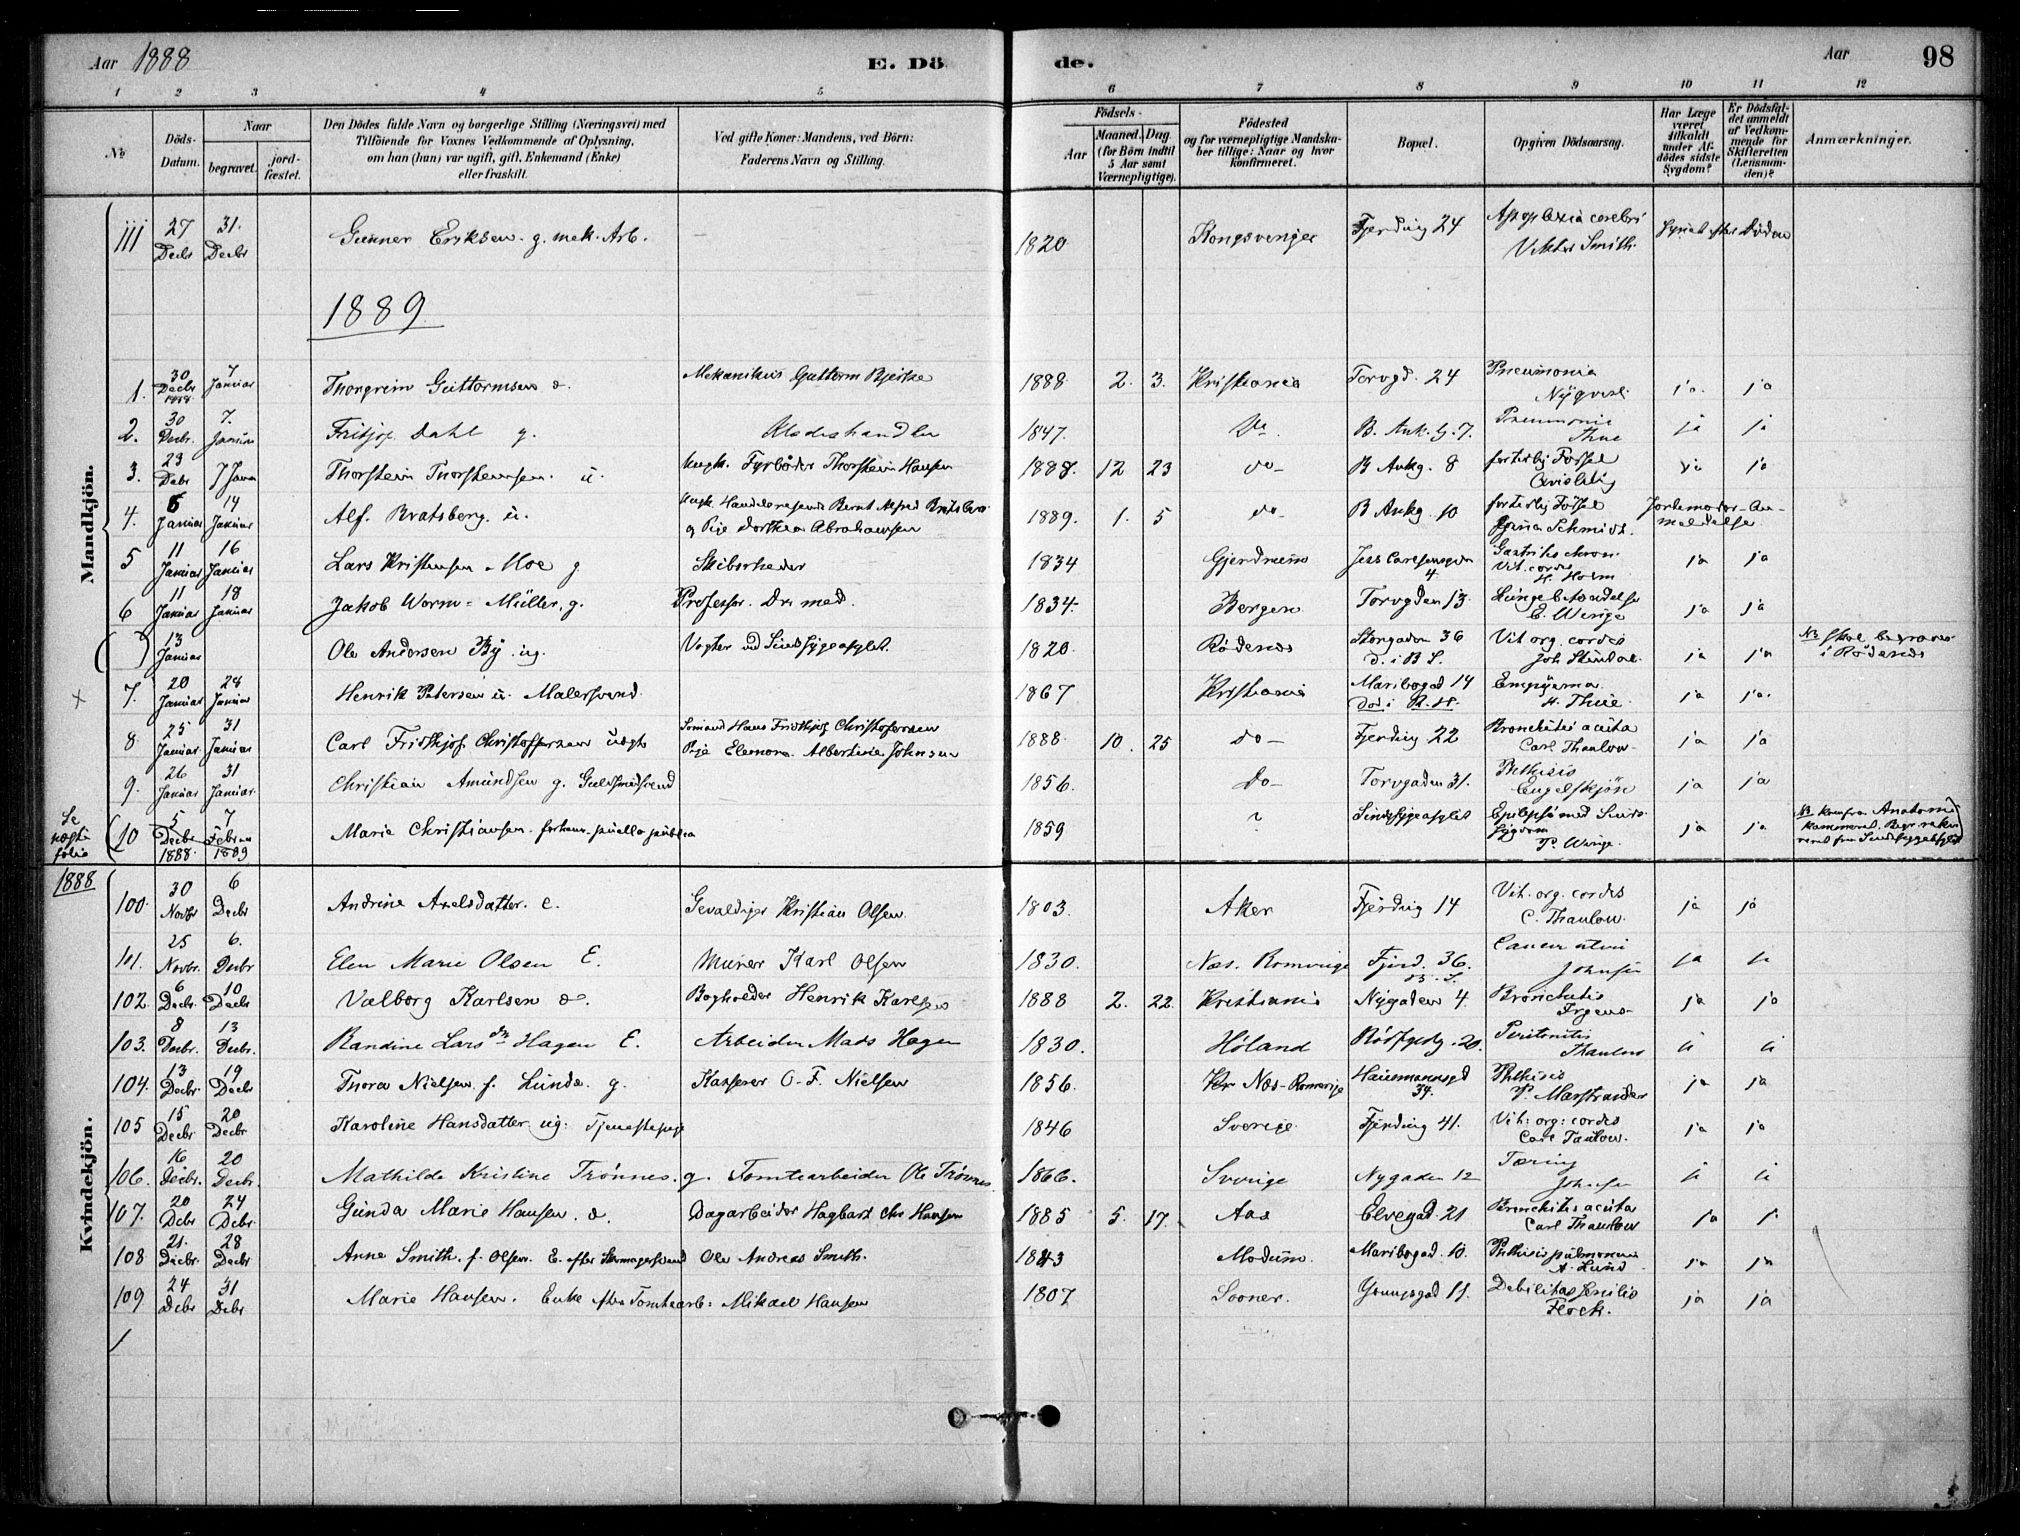 Aar 1888
E. Dö
de.
Aar
98
1 2 3 4 5 6 7 8 9 10 11 12
No
Döds-
Datum.
Naar
begravet.
jord-
fæstet.
Den Dödes fulde Navn og borgerlige Stilling (Næringsvei) med
Tilföiende for Voxnes Vedkommende af Oplysning,
om han (hun) var ugift, gift, Enkemand (Enke)
eller fraskilt.
Ved gifte Koner: Mandens, ved Börn:
Faderens Navn og Stilling.
Födsels-
Aar
Maaned. Dag.
(for Börn indtil
5 Aar samt
Værnepligtige).
Födested
og for værnepligtige Mandska-
ber tillige: Naar og hvor
konfirmeret.
Bopæl.
Opgiven Dödsaarsag.
Har Læge
været
tilkaldt
under Af-
dödes sidste
Sygdom?
Er Dödsfal-
det anmeldt
af Vedkom-
mende for
Skifteretten
(Lensman-
den)?
Anmærkninger.
Mandkjön.
111 27 Decbr 31. Decbr Gunner Eriksen g. mek. Arb. — 1820 Kongsvinger Fjerding 24 Apoplexia cerebri
Smith
1889
1. 30 Decbr 1888 7 Januar Thorgrim Guttormsen Mekanikus Guttorm Bjerke 1888 2. 3. Kristiania Torvgd. 24 Pneumonia
Nyqvist ja. ja
2. 30 Decbr. 7. Januar Fritjof Dahl g. Klædeshandler 1847. Do B. Ank. g. 7. Pneumonie
Thue ja ja
3. 23 Debr 7 Janu Thorstein Thorstensen u. uægt. Fyrböder Thorstein Hansen 1888. 12 23 do— B Ankg. 8 fortidlig Fössel
ja ja
4. 6 Januar 14 Januar Alf. Bratsberg. u. uægt. Handelsreisende Bernt Alfred Bratsberg
og Pige Dorthea Abrahamsen 1889. 1. 5 do— B Ankg. 10 fortidlig Fössel
Schmidt. Jordemoder-An-
meldelse
5 11 Januar 16 Januar Lars Kristensen Moe g Skibsrheder 1834 Gjerdrum Jess Carlsensgden
4. Gastritis chron
Vit. cordis
H. Holm ja ja
6 11 Januar 18 Januar Jakob Worm-Müller, g. Professor. Dr. med. 1834. Bergen Torvgden 13. Lungebetændelse
E. Winge ja ja
( ) 13 Januar Ole Andersen By ug. Vogter ved Sindssygeasylet. 1820. Rödenæs Storgaden 36
d. i B S. Vit org. cordis
Joh Stendal ja ja NB skal begraves
i Rödenæs
× 7. 20 Januar 24 Januar Henrik Petersen u. Malersvend. 1867 Kristiania Maribogad 14
Död i R. H. Empyema
H. Thue ja ja.
8 25 Januar. 31 Januar Carl Fridthjof Christoffersen uægte Sömand Hans Fridthjof Christoffersen
Pige Elenora Albertine Johnsen 1888 10. 25 do— Fjerding 22 Bronchitis acuta
Carl Thaulow ja ja
9. 26 Januar 31 Januar. Christian Amundsen g. Guldsmedsvend 1856. do— Torvgaden 31. Phthisis
Engelskjön ja ja
Se
næste
folio
10 5 Decbr 1888. 7 Februar 1889 Marie Christiansen forhenv. puella publica 1859 ? Sindssygeasylet Epilepsi med Sinds-
sygdom
P. Winge. ja ja NB kom fra Anatomi
kammeret. Begr.
fra Sindssygeasylet
1888
Kvindekjön.
100. 30 Novbr 6 Decbr Andrine Axelsdatter. e. Gevaldiger Kristian Olsen 1803. Aker Fjerding 14 Vit. org. cordis
C. Thaulow. ja ja
101. 25 Novbr. 6. Decbr Elen Marie Olsen E. Murer Karl Olsen 1830. Næs. Romerige Fjerd. 36.
B. S. Cancer uteri
Johnsen ja ja
102. 6 Decbr. 10 Decbr Valborg Karlsen Bogholder Henrik Karlsen 1888 2. 22. Kristiania Nygaden 4. Bronchitis
Irgens ja ja
103. 8 Decbr. 13 Decbr. Randine Larsdtr Hagen E. Arbeider Mads Hagen 1830. Höland 20. Peritonitis
Thaulow ja ja
104. 13 Decbr. 19 Decbr Thora Nielsen f. Lunde. g. Kasserer O. F. Nielsen 1856. Næs-Romerige Hausmannsgd
39. Phthisis
P. Marstrander ja ja
105 15 Decbr 20 Decbr. Karoline Hansdatter ug. Tjenestepige 1846 Sverige. Fjerding 41. Vit: org: cordis
Carl Taulow. ja ja
106. 16 Decbr. 20 Decbr. Mathilde Kristine Trönnes. g. Tomtearbeider Ole Trönnes 1866. Sverige Nygaden 12 Tæring
Johnsen ja ja
107. 20 Debr 24 Debr. Gunda Marie Hansen. Dagarbeider Hagbart Chr Hansen 1885 5. 17. Aas Elvegad. 21 Bronchitis acuta
Carl Thaulow ja ja
108 21. Decbr. 28 Decbr Anne Smith. f. Olsen. E. efter Skomagersvend Ole Andreas Smith. 1843 Modum. Maribogad. 10. Phthisis pulmonum
A. Lund ja ja
109 24 Debr 31 Debr Marie Hansen. Enke efter Tomtearb: Mikael Hansen 1807 Sooner. Youngsgad 11. Debilitas senilis
Flock. ja ja